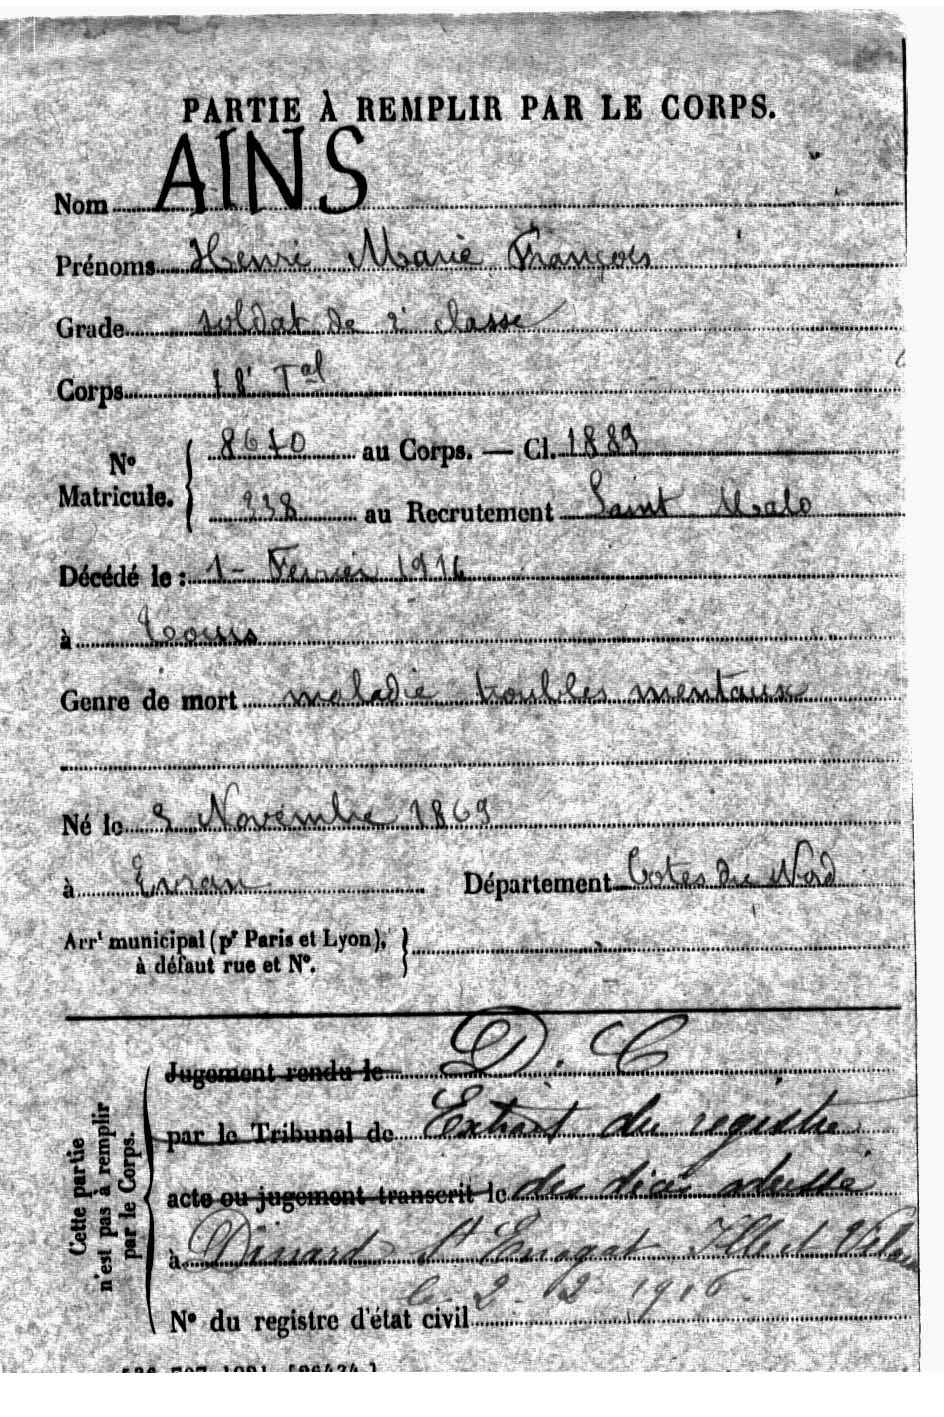 PARTIE À REMPLIR PAR LE CORPS.
Nom AINS
Prénoms Henri Marie François
Grade soldat de 2e classe
Corps 78e Tal
No Matricule. 8670 au Corps. — Cl. 1889
338 au Recrutement Saint Malo
Décédé le : 1- Fevrier 1916
à Tours
Genre de mort maladie troubles mentaux
Né le 5 Novembre 1869
à Evran Département Cotes du Nord
Arrt municipal (pr Paris et Lyon), à défaut rue et No.
Cette partie n'est pas à remplir par le Corps.
Jugement rendu le D. C
par le Tribunal de Extrait du registre
acte ou jugement transcrit le des décès adressé
à Dinard St Enogat Ille et Vilaine
le 2-2-1916.
No du registre d'état civil